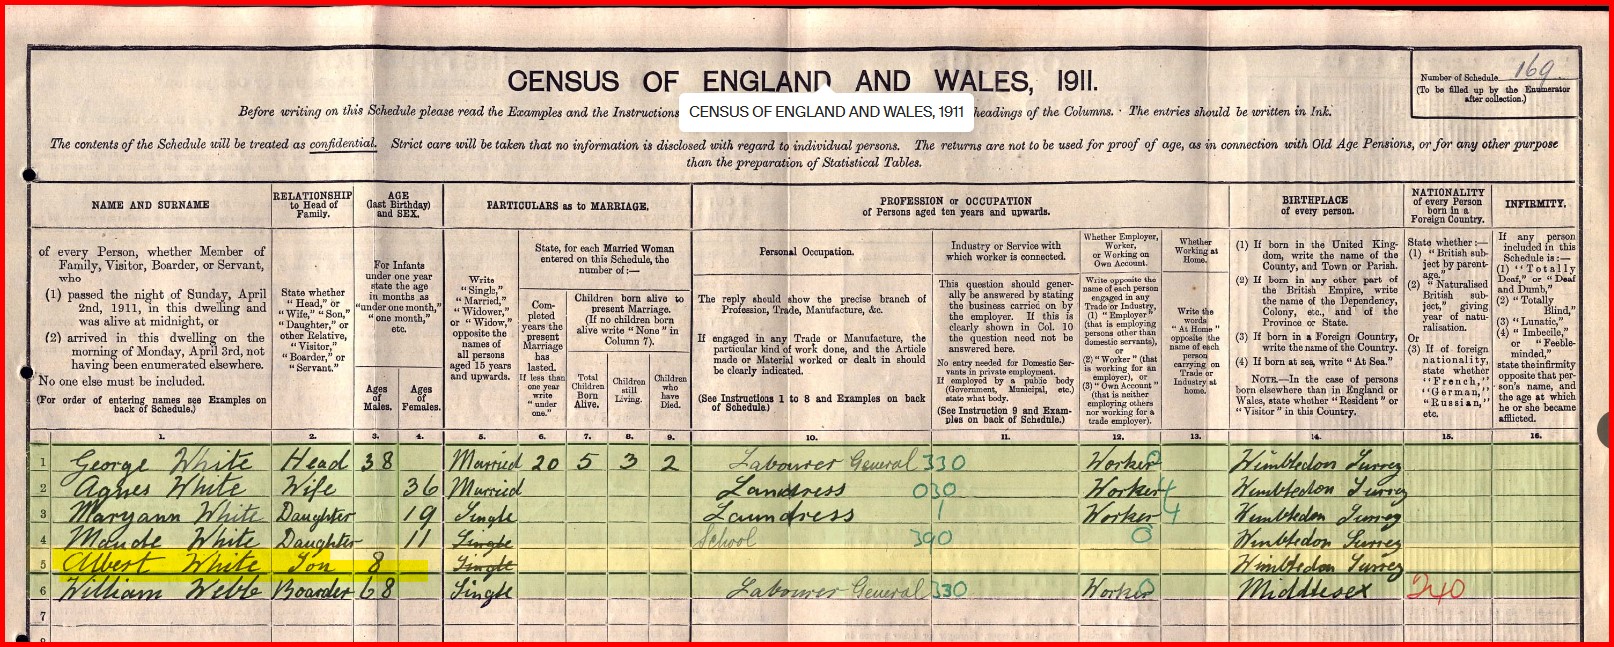 CENSUS OF ENGLAND AND WALES, 1911.
Number of Schedule 169
(To be filled up by the Enumerator
after collection.)
Before writing on this Schedule please read the Examples and the Instructions
CENSUS OF ENGLAND AND WALES, 1911
headings of the Columns. The entries should be written in Ink.
The contents of the Schedule will be treated as confidential. Strict care will be taken that no information is disclosed with regard to individual persons. The returns are not to be used for proof of age, as in connection with Old Age Pensions, or for any other purpose
than the preparation of Statistical Tables.
NAME AND SURNAME
RELATIONSHIP
to Head of
Family.
AGE
(last Birthday)
and SEX.
PARTICULARS as to MARRIAGE.
PROFESSION or OCCUPATION
of Persons aged ten years and upwards.
BIRTHPLACE
of every person.
NATIONALITY
of every Person
born in a
Foreign Country.
INFIRMITY.
of every Person, whether Member of
Family, Visitor, Boarder, or Servant,
who
(1) passed the night of Sunday, April
2nd, 1911, in this dwelling and
was alive at midnight, or
(2) arrived in this dwelling on the
morning of Monday, April 3rd, not
having been enumerated elsewhere.
No one else must be included.
(For order of entering names see Examples on
back of Schedule.)
State whether
"Head," or
"Wife," "Son,"
"Daughter," or
other Relative,
"Visitor,"
"Boarder," or
"Servant."
For Infants
under one year
state the age
in months as
"under one month,"
"one month,"
etc.
Ages
of
Males.
Ages
of
Females.
Write
"Single,"
"Married,"
"Widower,"
or "Widow,"
opposite the
names of
all persons
aged 15 years
and upwards.
State, for each Married Woman
entered on this Schedule, the
number of:—
Com-
pleted
years the
present
Marriage
has
lasted.
If less than
one year
write
"under
one."
Children born alive to
present Marriage.
(If no children born
alive write "None" in
Column 7).
Total
Children
Born
Alive.
Children
still
Living.
Children
who
have
Died.
Personal Occupation.
The reply should show the precise branch of
Profession, Trade, Manufacture, &c.
If engaged in any Trade or Manufacture, the
particular kind of work done, and the Article
made or Material worked or dealt in should
be clearly indicated.
(See Instructions 1 to 8 and Examples on back
of Schedule.)
Industry or Service with
which worker is connected.
This question should gener-
ally be answered by stating
the business carried on by
the employer. If this is
clearly shown in Col. 10
the question need not be
answered here.
No entry needed for Domestic Ser-
vants in private employment.
If employed by a public body
(Government, Municipal, etc.)
state what body.
(See Instruction 9 and Exam-
ples on back of Schedule.)
Whether Employer,
Worker,
or Working on
Own Account.
Write opposite the
name of each person
engaged in any
Trade or Industry,
(1) "Employer"
(that is employing
persons other than
domestic servants),
or
(2) "Worker" (that
is working for an
employer), or
(3) "Own Account"
(that is neither
employing others
nor working for a
trade employer).
Whether
Working at
Home.
Write the
words
"At Home"
opposite the
name of each
person
carrying on
Trade or
Industry at
home.
(1) If born in the United King-
dom, write the name of the
County, and Town or Parish.
(2) If born in any other part of
the British Empire, write
the name of the Dependency,
Colony, etc., and of the
Province or State.
(3) If born in a Foreign Country,
write the name of the Country.
(4) If born at sea, write "At Sea."
NOTE.—In the case of persons
born elsewhere than in England or
Wales, state whether "Resident" or
"Visitor" in this Country.
State whether:—
(1) "British sub-
ject by parent-
age."
(2) "Naturalised
British sub-
ject," giving
year of natu-
ralisation.
Or
(3) If of foreign
nationality,
state whether
"French,"
"German,"
"Russian,"
etc.
If any person
included in this
Schedule is:—
(1) "Totally
Deaf," or "Deaf
and Dumb,"
(2) "Totally
Blind,"
(3) "Lunatic,"
(4) "Imbecile,"
or "Feeble-
minded,"
state the infirmity
opposite that per-
son's name, and
the age at which
he or she became
afflicted.
1. 2. 3. 4. 5. 6. 7. 8. 9. 10. 11. 12. 13. 14. 15. 16.
1 George White Head 38 Married 20 5 3 2 Labourer General 330 Worker Wimbledon Surrey
2 Agnes White Wife 36 Married Laundress 030 Worker 4 Wimbledon Surrey
3 Maryann White Daughter 19 Single Laundress 1 Worker 4 Wimbledon Surrey
4 Maude White Daughter 11 Single School 390 0 Wimbledon Surrey
5 Albert White Son 8 Single Wimbledon Surrey
6 William Webb Boarder 68 Single Labourer General 330 Worker Middlesex 240
7